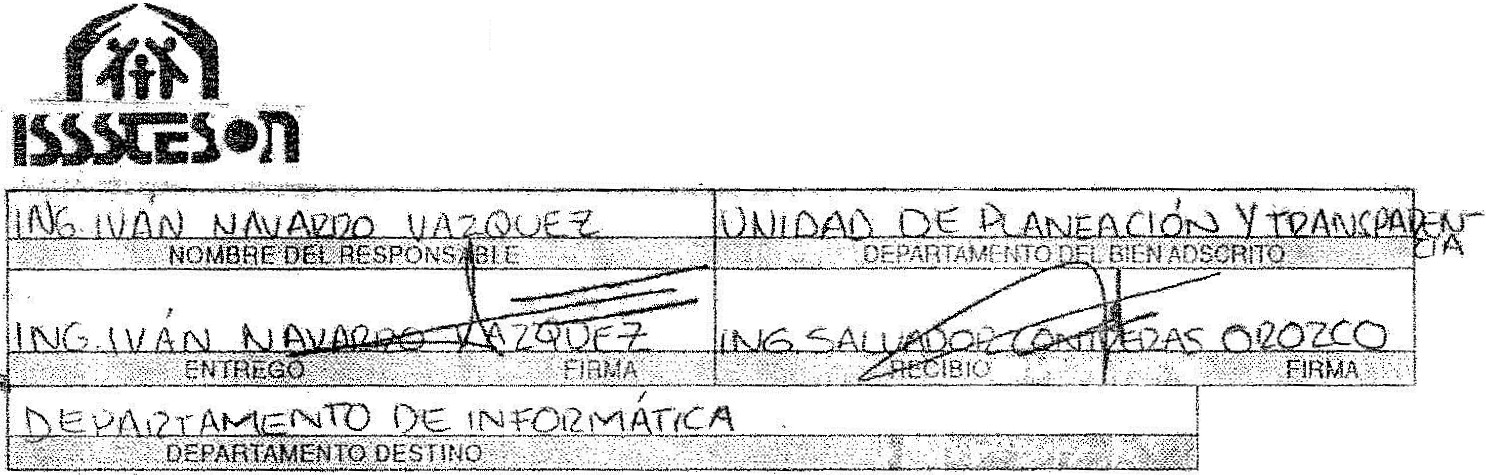 ISSSTESON
ING. IVÁN NAVARRO VAZQUEZ UNIDAD DE PLANEACIÓN Y TRANSPARENCIA
NOMBRE DEL RESPONSABLE DEPARTAMENTO DEL BIEN ADSCRITO
ING. IVÁN NAVARRO VAZQUEZ ING. SALVADOR CONTRERAS OROZCO
ENTREGO FIRMA RECIBIO FIRMA
DEPARTAMENTO DE INFORMÁTICA
DEPARTAMENTO DESTINO